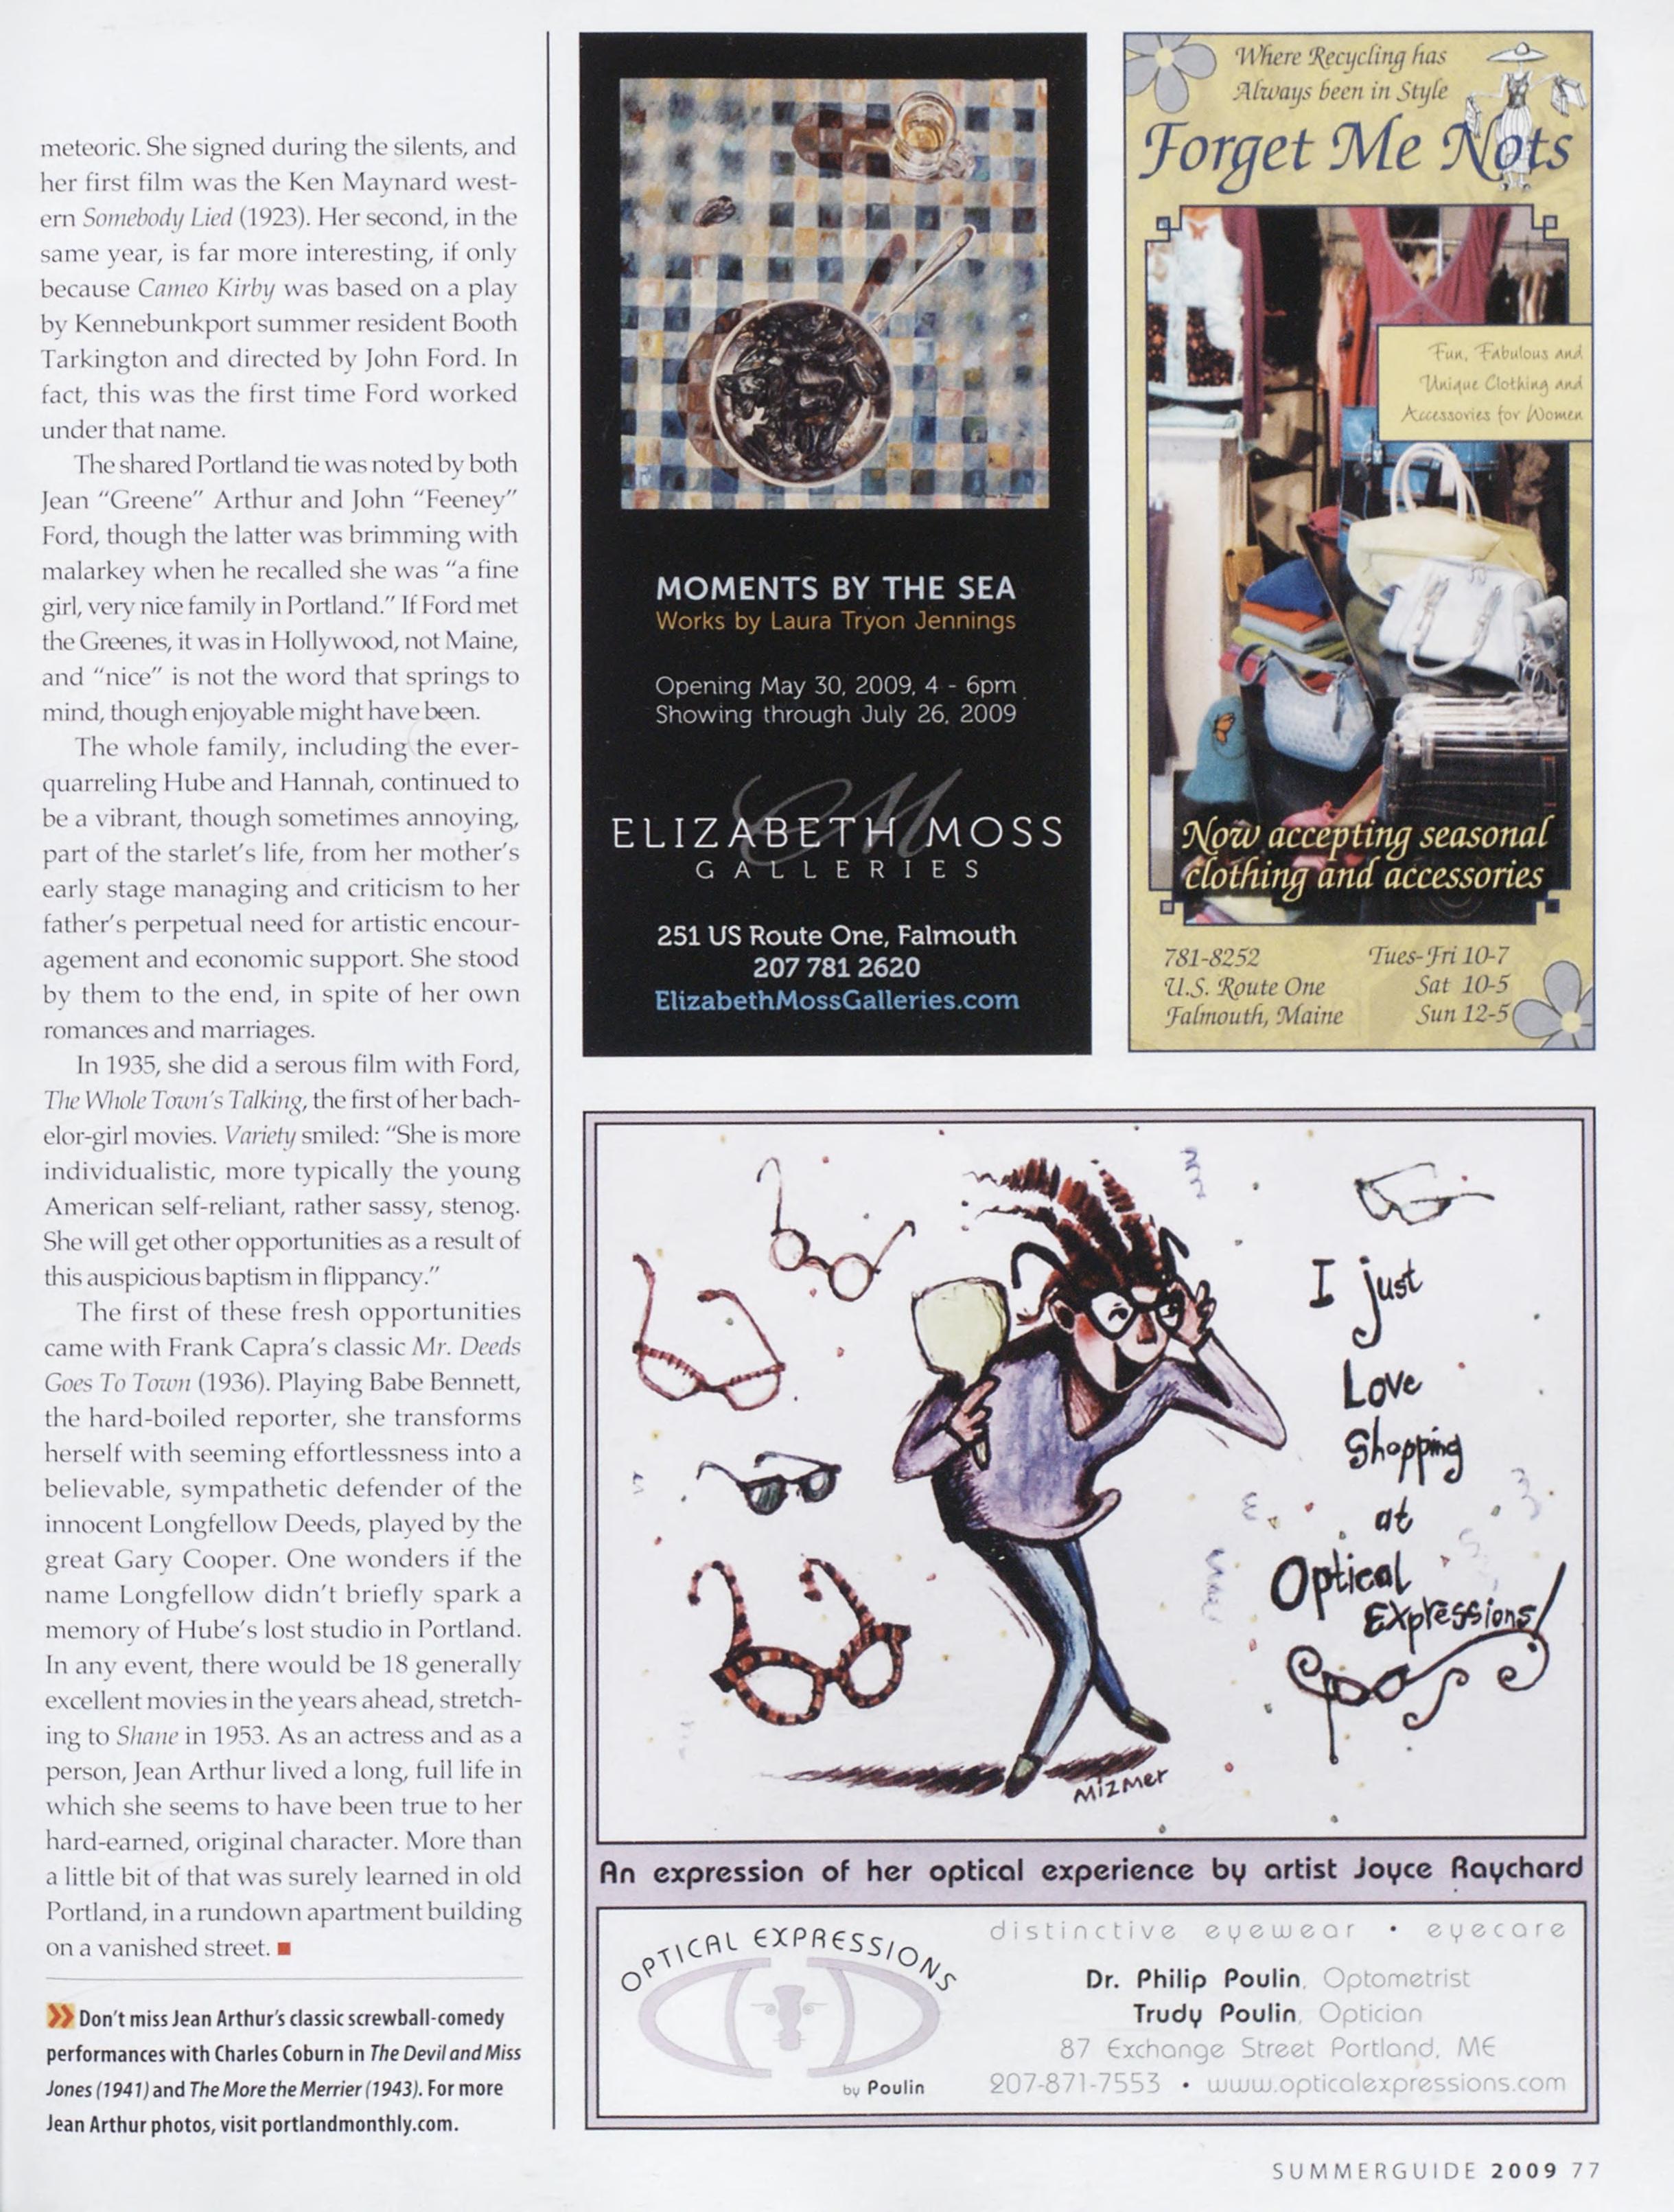 meteoric. She signed during the silents, and
her first film was the Ken Maynard west-
ern Somebody Lied (1923). Her second, in the
same year, is far more interesting, if only
because Cameo Kirby was based on a play
by Kennebunkport summer resident Booth
Tarkington and directed by John Ford. In
fact, this was the first time Ford worked
under that name.
The shared Portland tie was noted by both
Jean “Greene” Arthur and John “Feeney”
Ford, though the latter was brimming with
malarkey when he recalled she was “a fine
girl, very nice family in Portland.” If Ford met
the Greenes, it was in Hollywood, not Maine,
and “nice” is not the word that springs to
mind, though enjoyable might have been.
The whole family, including the ever-
quarreling Hube and Hannah, continued to
be a vibrant, though sometimes annoying,
part of the starlet’s life, from her mother’s
early stage managing and criticism to her
father’s perpetual need for artistic encour-
agement and economic support. She stood
by them to the end, in spite of her own
romances and marriages.
In 1935, she did a serous film with Ford,
The Whole Town’s Talking, the first of her bach-
elor-girl movies. Variety smiled: “She is more
individualistic, more typically the young
American self-reliant, rather sassy, stenog.
She will get other opportunities as a result of
this auspicious baptism in flippancy.”
The first of these fresh opportunities
came with Frank Capra’s classic Mr. Deeds
Goes To Town (1936). Playing Babe Bennett,
the hard-boiled reporter, she transforms
herself with seeming effortlessness into a
believable, sympathetic defender of the
innocent Longfellow Deeds, played by the
great Gary Cooper. One wonders if the
name Longfellow didn’t briefly spark a
memory of Hube’s lost studio in Portland.
In any event, there would be 18 generally
excellent movies in the years ahead, stretch-
ing to Shane in 1953. As an actress and as a
person, Jean Arthur lived a long, full life in
which she seems to have been true to her
hard-earned, original character. More than
a little bit of that was surely learned in old
Portland, in a rundown apartment building
on a vanished street.
Don’t miss Jean Arthur’s classic screwball-comedy
performances with Charles Coburn in The Devil and Miss
Jones (1941) and The More the Merrier (1943). For more
Jean Arthur photos, visit portlandmonthly.com.
MOMENTS BY THE SEA
Works by Laura Tryon Jennings
Opening May 30, 2009, 4 - 6pm
Showing through July 26, 2009
EM
ELIZABETH MOSS
GALLERIES
251 US Route One, Falmouth
207 781 2620
ElizabethMossGalleries.com
Where Recycling has
Always been in Style
Forget Me Nots
Fun, Fabulous and
Unique Clothing and
Accessories for Women
Now accepting seasonal
clothing and accessories
781-8252
U.S. Route One
Falmouth, Maine
Tues-Fri 10-7
Sat 10-5
Sun 12-5
I just
Love
Shopping
at
Optical
Expressions!
MizMer
An expression of her optical experience by artist Joyce Raychard
OPTICAL EXPRESSIONS
by Poulin
distinctive eyewear • eyecare
Dr. Philip Poulin, Optometrist
Trudy Poulin, Optician
87 Exchange Street Portland, ME
207-871-7553 • www.opticalexpressions.com
SUMMERGUIDE 2009 77